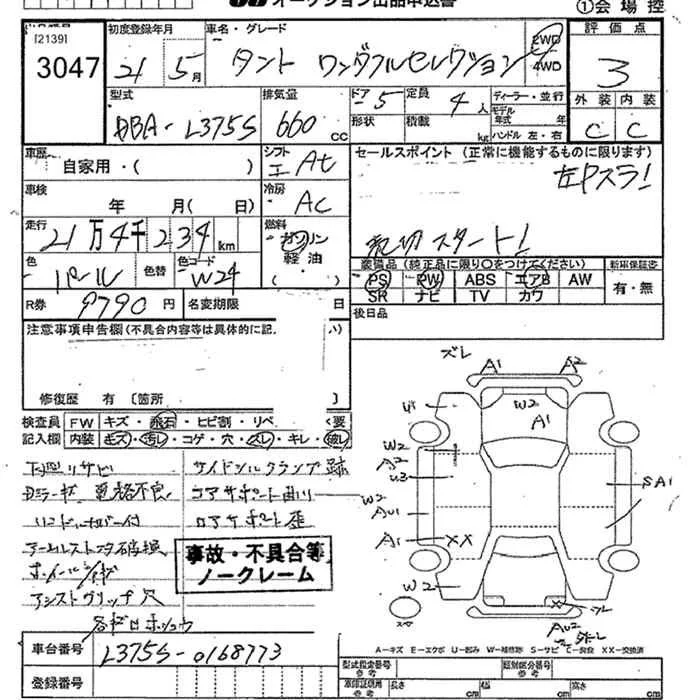 オークション出品申込書
①会場控
[2139]
初度登録年月
車名・グレード
評価点
3047
21年 5月
タント ワンダフルセレクション
2WD
4WD
3
型式
排気量
ドア
定員
ディーラー・並行
外装
内装
DBA-L375S
660 cc
5
4人
モデル年式 年式
形状
積載
kg
ハンドル 左・右
C
C
車歴
自家用・( )
シフト
At
セールスポイント (正常に機能するものに限ります)
左Pスラ!
車検
年 月( 日)
冷房
AC
走行
21万4千234 km
燃料
ガソリン
軽油
( )
売切スタート!
色
パール
色替
色コード
W24
装備品 (純正品に限り○をつけてください)
新車保証書
PS
PW
ABS
エアB
AW
有・無
SR
ナビ
TV
カワ
R券
9790 円
名変期限
日
後日品
注意事項申告欄 (不具合内容等は具体的に記
修復歴 有 〔箇所 〕
検査員
記入欄
FW
キズ・飛石・ヒビ割・リペ
要
内装
キズ・汚レ・コゲ・穴・スレ・キレ・破レ
下廻リサビ
サイドシルクランプ跡
Dミラーキズ 電格不良
コアサポート曲り
コアサポート歪
アームレストフタ破損
アシストグリップ穴
事故・不具合等
ノークレーム
車台番号
L375S-0168773
登録番号
ズレ
A1
A2
W2
A1
U1
W2
A2
U3
W2
AU1
A1
XX
W2
SA1
X
AU2
A-キズ E-エクボ U-凹み W-補修跡 S-サビ C-腐食 XX-交換済
型式指定番号
参考
類別区分番号
参考
車庫証明用
参考
長さ
cm
幅
cm
高さ
cm